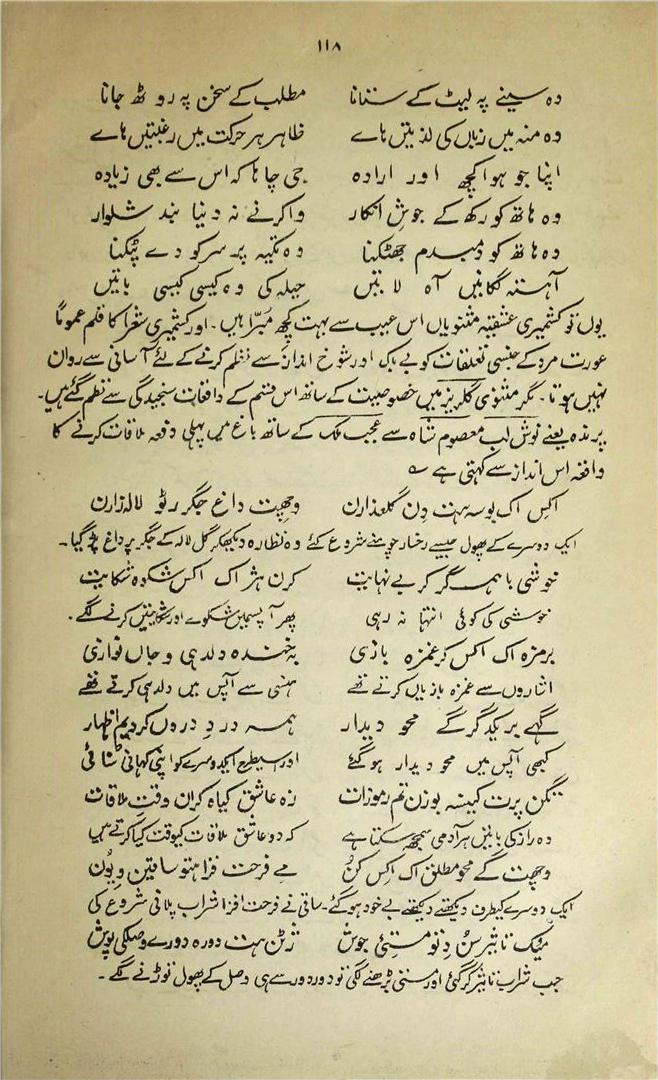 ۱۱۸
وہ سینے پہ لیٹ کے ستانا مطلب کے سخن پہ روٹھ جانا
وہ منہ میں زباں کی لذتیں ہائے ظاہر ہر حرکت میں رغبتیں ہائے
اپنا جو ہوا کچھ اور ارادہ جی چاہا کہ اس سے بھی زیادہ
وہ ہاتھ کو رکھ کے جوشِ انکار وا کرنے نہ دینا بند شلوار
وہ ہاتھ کو دمبدم جھٹکنا وہ تکیہ پر سر کو دے پٹکنا
آہستہ لگانیں آہ لاتیں حیلہ کی وہ کیسی کیسی باتیں
یوں تو کشمیری عشقیہ مثنویاں اس عیب سے بہت کچھ مبرّا ہیں۔ اور کشمیری شعرا کا قلم عموماً
عورت مرد کے جنسی تعلقات کو بے باک اور شوخ انداز سے نظم کرنے کے لئے آسانی سے رواں
نہیں ہوتا۔ مگر مثنوی گلریز میں خصوصیت کے ساتھ اس قسم کے واقعات سنجیدگی سے نظم گئے ہیں۔
پرندہ یعنے نوش لب معصوم شاہ سے عجب ملک کے ساتھ باغ میں پہلی دفعہ ملاقات کرنے کا
واقعہ اس انداز سے کہتی ہے
اکس اک بوسہ ہت دِن گلعذارن وچھت داغ جگر رٹو لالہ زارن
ایک دوسرے کے پھول جیسے رخسار چومنے شروع کئے وہ نظارہ دیکھکر گل لالہ کے جگر پر داغ پڑ گیا۔
خوشی باہمدگر کر بے نہایت کرن ہژ اک اکس شکوہ شکایت
خوشی کی کوئی انتہا نہ رہی پھر آپسمیں شکوے اور شکایتیں کرنے لگے۔
برمزہ اک اکس کر غمزہ بازی بہ خندہ دلدہی و جاں نوازی
اشاروں سے غمزہ بازیاں کرتے تھے ہنسی سے آپس میں دلدہی کرتے تھے
گہے بر یکدگر گے محو دیدار ہمہ درد دروں کردیم اظہار
کبھی آپس میں محو دیدار ہو گئے اور اسیطرح ایکدوسرے کو اپنی کہانی سُنائی
تگن پرت کیسہ بوزن تم رموزات زہ عاشق کیاہ کران وقت ملاقات
وہ راز کی باتیں ہر آدمی سمجھ سکتا ہے کہ دو عاشق ملاقات کیوقت کیا کرتے ہیں
وچھت گے محو مطلق اک اکس کُن مے فرحت فزا ہتو ساقین دِیُن
ایک دوسرے کیطرف دیکھتے دیکھتے بے خود ہو گئے۔ ساقی نے فرحت افزا شراب پلانی شروع کی
میک تاثیر سن دِتو مستئی جوش ژٹن ہت دورہ دورے وصلکی پوش
جب شراب تاثیر کر گئی اور مستی بڑھنے لگی تو دور دور سے ہی وصل کے پھول توڑنے لگے۔